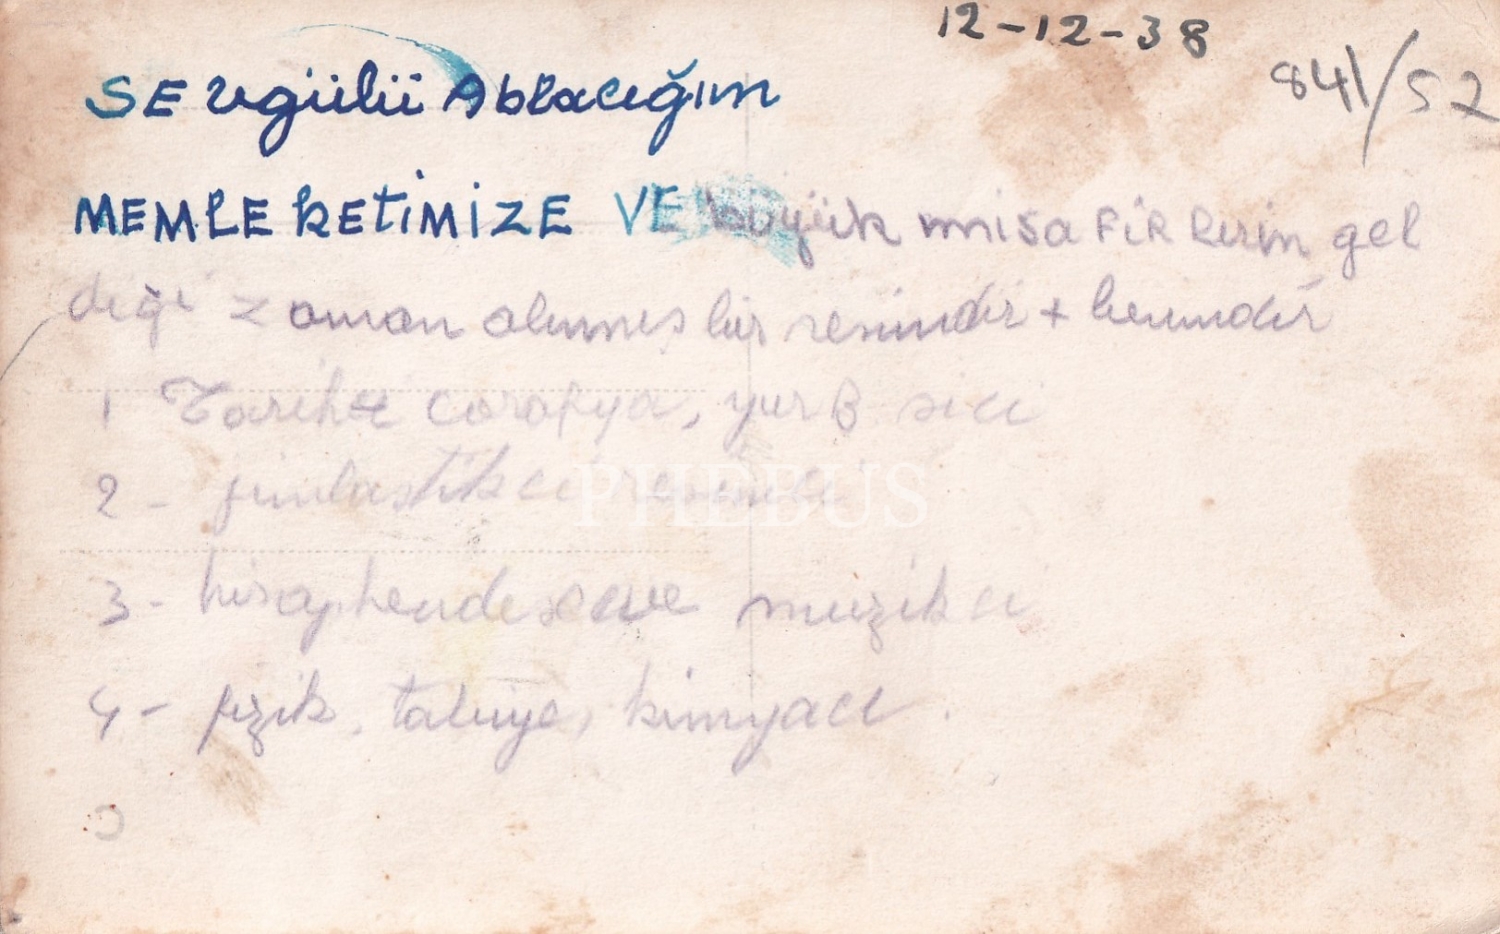 12-12-38
841/52
SEvgülü Ablacığım
MEMLEKETİMİZE VE büyük misaFiRlerin gel
diği zaman alınmış bir resimdir + benimdir
1 Tarihce corafya, yurB sici
2 - jimlastikci resimci
PHEBUS
3 - hisap hendese ve muzikci
4 - fizik, tabiiye, kimyacı.